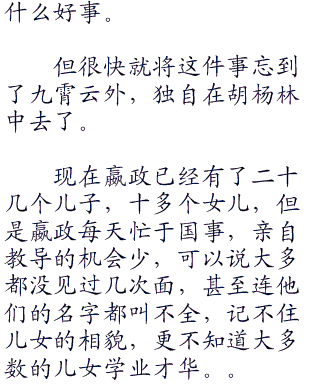 什么好事。
但很快就将这件事忘到
了九霄云外，独自在胡杨林
中去了。
现在嬴政已经有了二十
几个儿子，十多个女儿，但
是嬴政每天忙于国事，亲自
教导的机会少，可以说大多
都没见过几次面，甚至连他
们的名字都叫不全，记不住
儿女的相貌，更不知道大多
数的儿女学业才华。。